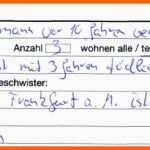 mann vor 10 Jahren ver
Anzahl 3 wohnen alle / te
mit 3 Jahren
eschwister:
Frankfurt a. M. ist